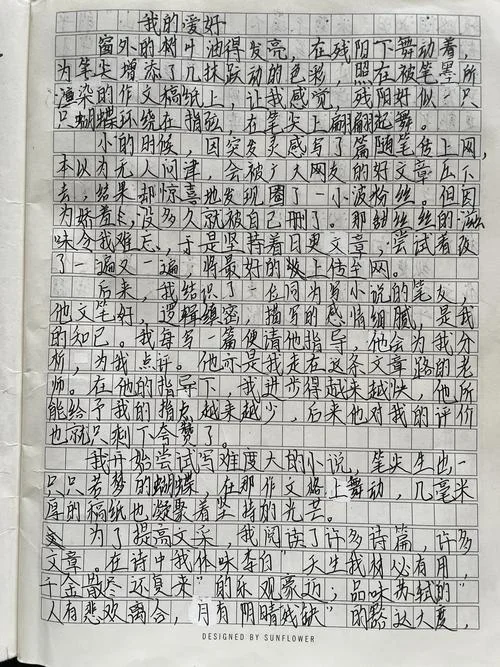 我的爱好
窗外的树叶油得发亮，在残阳下舞动着，
为笔尖增添了几抹跃动的色彩，照在被笔墨所
渲染的作文稿纸上，让我感觉，残阳好似一只
只蝴蝶环绕在指弦，在笔尖上翩翩起舞。
小的时候，因突发灵感写了篇随笔传上网，
本以为无人问津，会被广大网友的好文章压下
去，结果却惊喜地发现圈了一小波粉丝。但因
为娇羞，没多久就被自己删了。那甜丝丝的滋
味令我难忘，于是坚持着日更文章，尝试着改
了一遍又一遍，将最好的上传至网。
后来，我结识了一位同为写小说的笔友，
他文笔好，逻辑缜密，描写的感情细腻，是我
的知己。我每写一篇便请他指导，他会为我分
析，为我点评。他亦是我走在这条文章路的老
师。在他的指导下，我进步得越来越快，他所
能给予我的指点越来越少，后来他对我的评价
也就只剩下夸赞了。
我开始尝试写难度大的小说，笔尖生出一
只只若梦的蝴蝶，在那作文格上舞动，几毫米
厚的稿纸也凝聚着坚持的光芒。
为了提高文采，我阅读了许多诗篇，许多
文章。在诗中我体味李白“天生我材必有用，
千金散尽还复来”的乐观豪迈；品味苏轼的“
人有悲欢离合，月有阴晴圆缺”的豁达大度，
DESIGNED BY SUNFLOWER